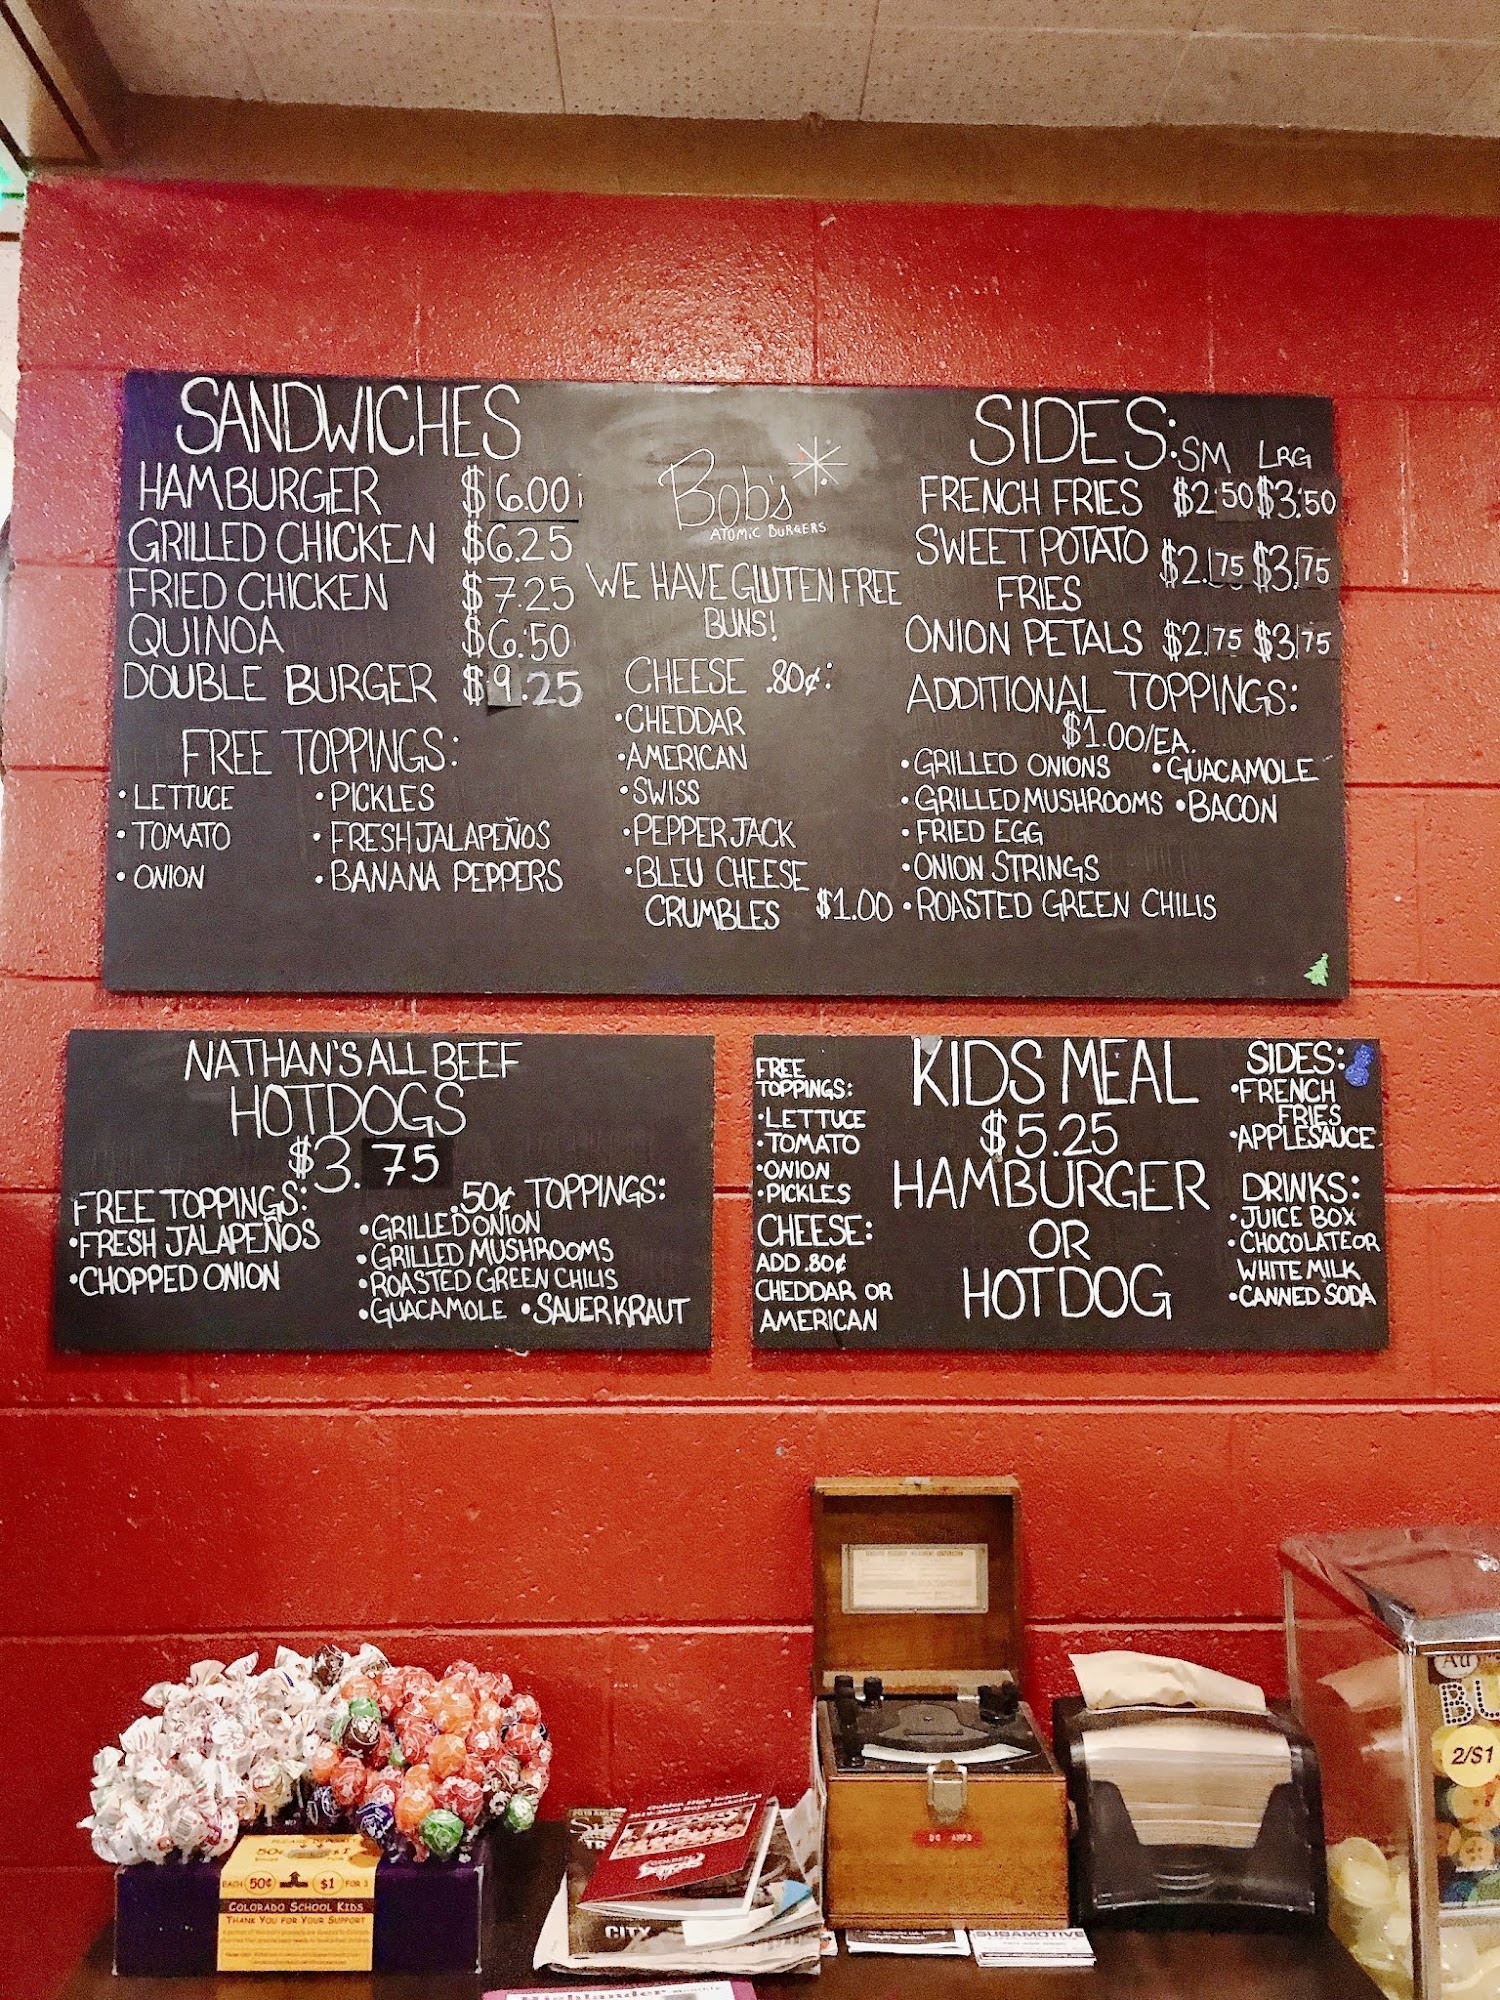 SANDWICHES
HAMBURGER $6.00
GRILLED CHICKEN $6.25
FRIED CHICKEN $7.25
QUINOA $6.50
DOUBLE BURGER $9.25
FREE TOPPINGS:
• LETTUCE
• TOMATO
• ONION
• PICKLES
• FRESH JALAPEÑOS
• BANANA PEPPERS
Bob's
ATOMIC BURGERS
WE HAVE GLUTEN FREE
BUNS!
CHEESE .80¢:
• CHEDDAR
• AMERICAN
• SWISS
• PEPPER JACK
• BLEU CHEESE
CRUMBLES $1.00
SIDES: SM LRG
FRENCH FRIES $2.50 $3.50
SWEET POTATO
FRIES $2.75 $3.75
ONION PETALS $2.75 $3.75
ADDITIONAL TOPPINGS:
$1.00/EA.
• GRILLED ONIONS
• GRILLED MUSHROOMS
• FRIED EGG
• ONION STRINGS
• ROASTED GREEN CHILIS
• GUACAMOLE
• BACON
NATHAN'S ALL BEEF
HOTDOGS
$3.75
FREE TOPPINGS:
• FRESH JALAPEÑOS
• CHOPPED ONION
.50¢ TOPPINGS:
• GRILLED ONION
• GRILLED MUSHROOMS
• ROASTED GREEN CHILIS
• GUACAMOLE • SAUERKRAUT
FREE
TOPPINGS:
• LETTUCE
• TOMATO
• ONION
• PICKLES
CHEESE:
ADD .80¢
CHEDDAR OR
AMERICAN
KIDS MEAL
$5.25
HAMBURGER
OR
HOTDOG
SIDES:
• FRENCH
FRIES
• APPLESAUCE
DRINKS:
• JUICE BOX
• CHOCOLATE OR
WHITE MILK
• CANNED SODA
50¢ $1
EACH 50¢ $1 FOR 3
COLORADO SCHOOL KIDS
THANK YOU FOR YOUR SUPPORT
CITY
DC AMPS
SUBAMOTIVE
Highlander
BU
2/$1